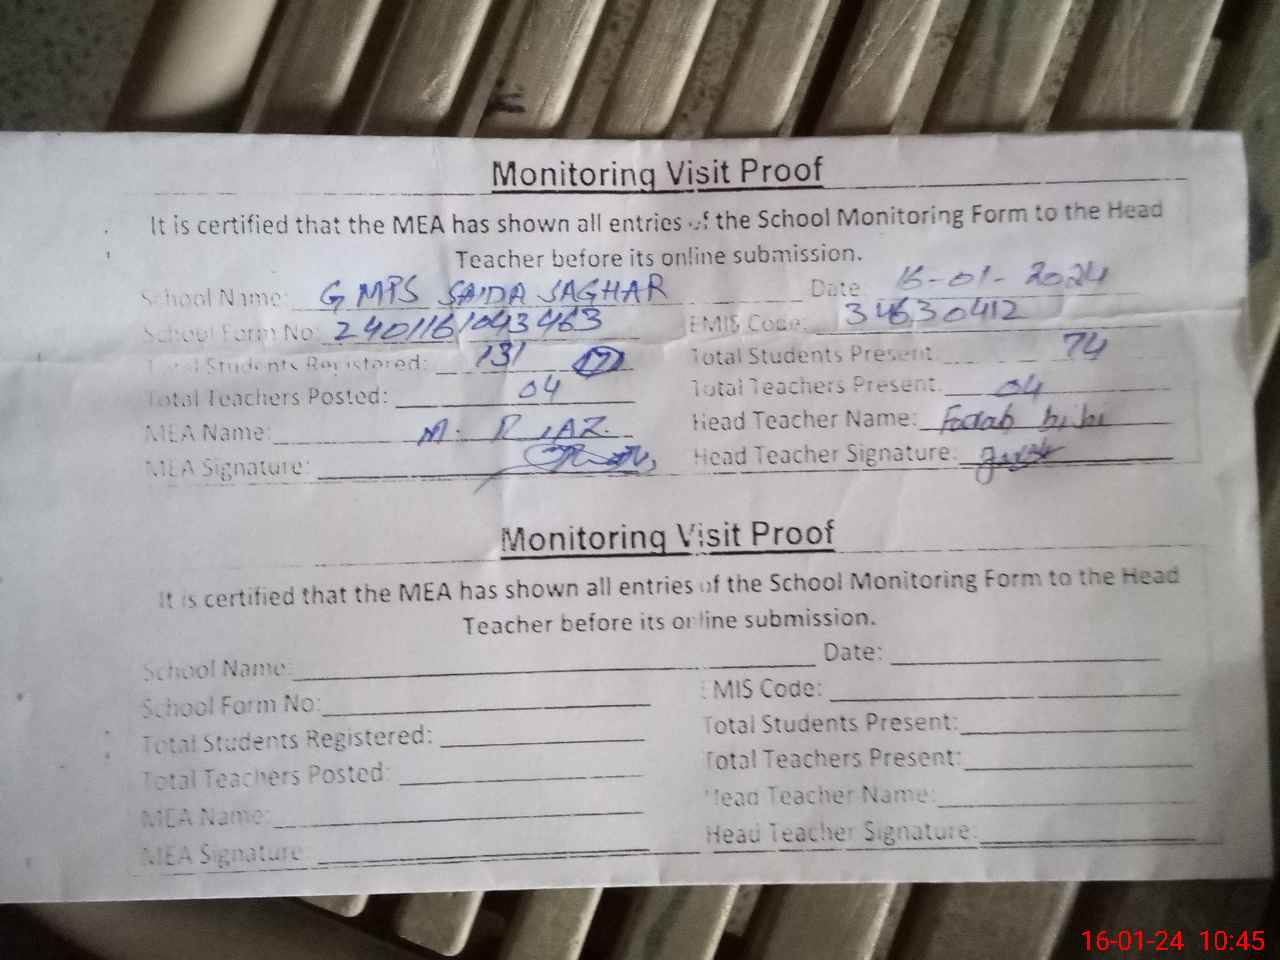 Monitoring Visit Proof
It is certified that the MEA has shown all entries of the School Monitoring Form to the Head
Teacher before its online submission.
School Name: GMPS SAIDA SAGHAR Date: 16-01-2024
School Form No: 2401161043463 EMIS Code: 34630412
Total Students Registered: 131 Total Students Present: 74
Total Teachers Posted: 04 Total Teachers Present: 04
MEA Name: M. RIAZ. Head Teacher Name: bibi
MEA Signature: Head Teacher Signature:
Monitoring Visit Proof
It is certified that the MEA has shown all entries of the School Monitoring Form to the Head
Teacher before its online submission.
School Name: Date:
School Form No: EMIS Code:
Total Students Registered: Total Students Present:
Total Teachers Posted: Total Teachers Present:
MEA Name: Head Teacher Name:
MEA Signature: Head Teacher Signature:
16-01-24 10:45